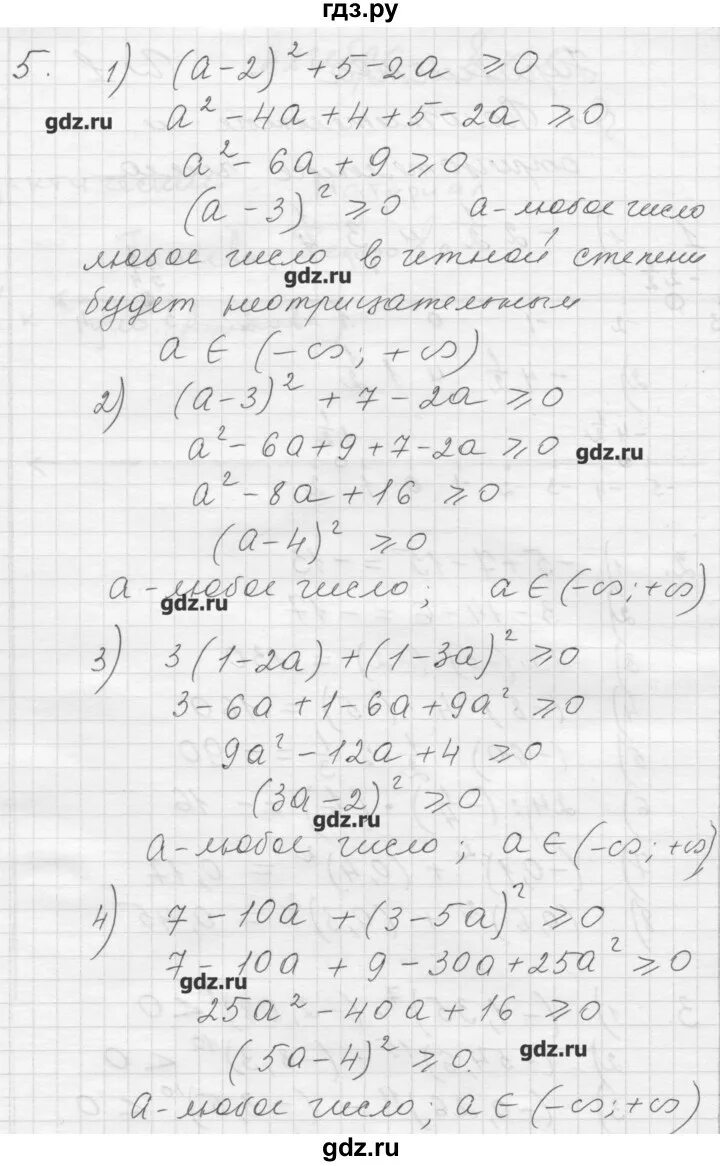 гдз.ру
5. 1) (a-2)² + 5 - 2a ⩾ 0
gdz.ru
a² - 4a + 4 + 5 - 2a ⩾ 0
a² - 6a + 9 ⩾ 0
(a - 3)² ⩾ 0 a - любое число,
любое число в четной степени
gdz.ru
будет неотрицательным
a ∈ (-∞; +∞)
2) (a-3)² + 7 - 2a ⩾ 0
a² - 6a + 9 + 7 - 2a ⩾ 0
gdz.ru
a² - 8a + 16 ⩾ 0
(a-4)² ⩾ 0
a - любое число; a ∈ (-∞; +∞)
gdz.ru
3) 3(1-2a) + (1-3a)² ⩾ 0
3 - 6a + 1 - 6a + 9a² ⩾ 0
9a² - 12a + 4 ⩾ 0
(3a-2)² ⩾ 0
gdz.ru
a - любое число; a ∈ (-∞; +∞)
4) 7 - 10a + (3-5a)² ⩾ 0
7 - 10a + 9 - 30a + 25a² ⩾ 0
gdz.ru
25a² - 40a + 16 ⩾ 0
(5a-4)² ⩾ 0.
gdz.ru
a - любое число; a ∈ (-∞; +∞)
gdz.ru